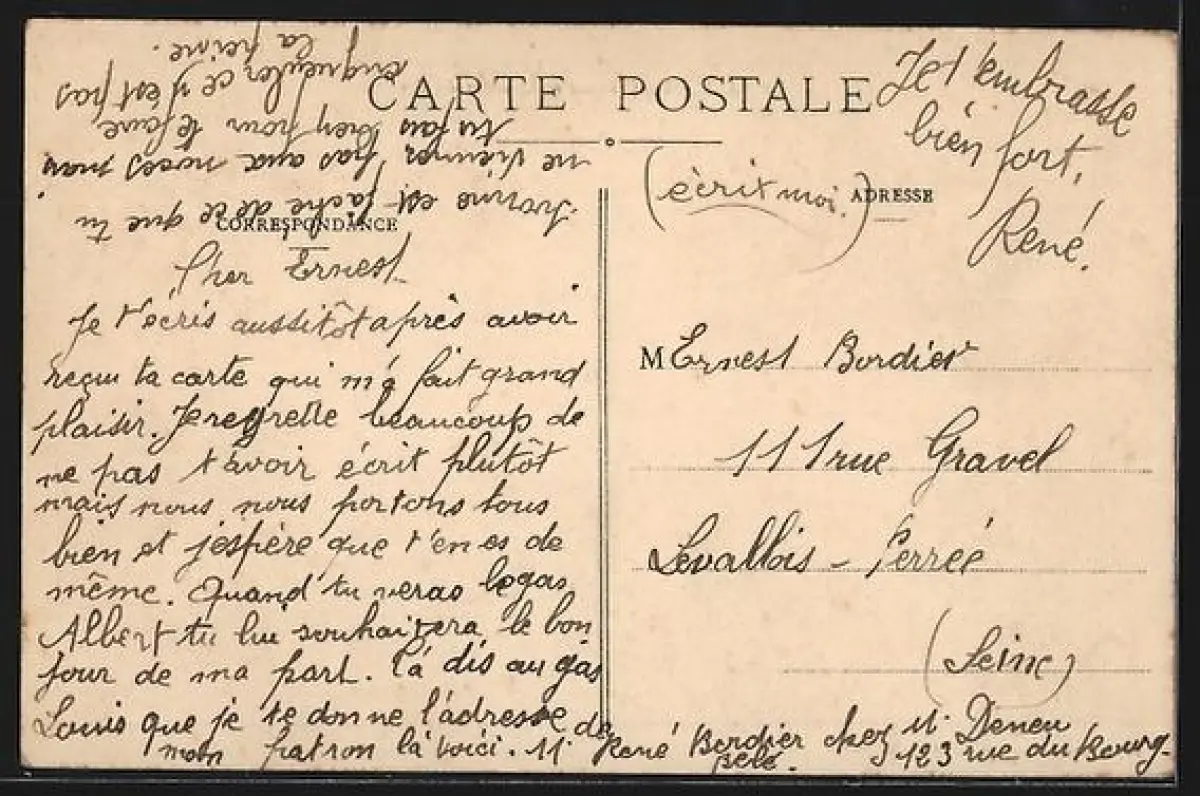 CARTE POSTALE
CORRESPONDANCE
ADRESSE
Cher Ernest
Je t'écris aussitôt après avoir
reçu ta carte qui m'a fait grand
plaisir. Je regrette beaucoup de
ne pas t'avoir écrit plutôt
mais nous nous portons tous
bien et j'espère que t'en es de
même. Quand tu veras le gas
Albert tu lui souhaitera le bon
jour de ma part. Ca dis au gas
Louis que je te donne l'adresse de
mon patron la voici. M. René Bordier chez M. Deneu
123 rue du Bourg-
Belé.
Yvonne est fachée de ce que tu
ne viennes pas aux noces mais
tu fais bien pour te faire
engueuler ce n'est pas
la peine.
Je t'embrasse
bien fort,
René.
(écrit moi.)
M Ernest Bordier
111 rue Gravel
Levallois - Perreé
(Seine)